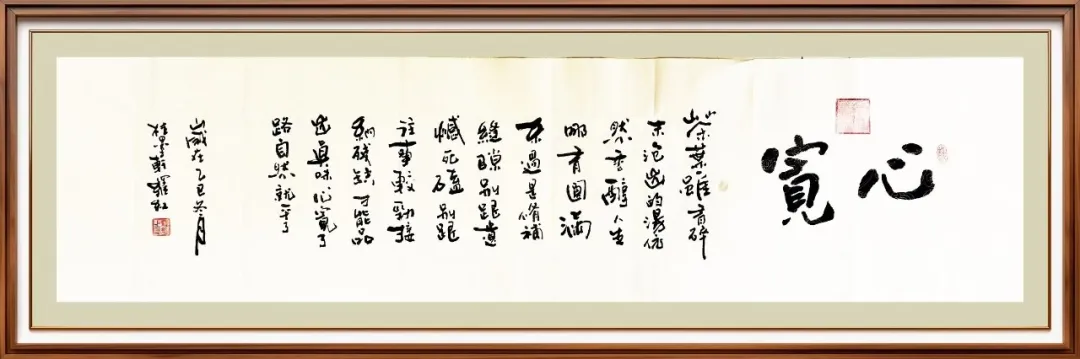 心寬
茶葉雖有碎
末泡出的湯仍
然香醇人生
哪有圓滿
不過是修補
縫隙別跟遺
憾死磕別跟
往事較勁接
納殘缺才能品
出真味心寬了
路自然就平了
歲在乙巳冬月
墨軒羅